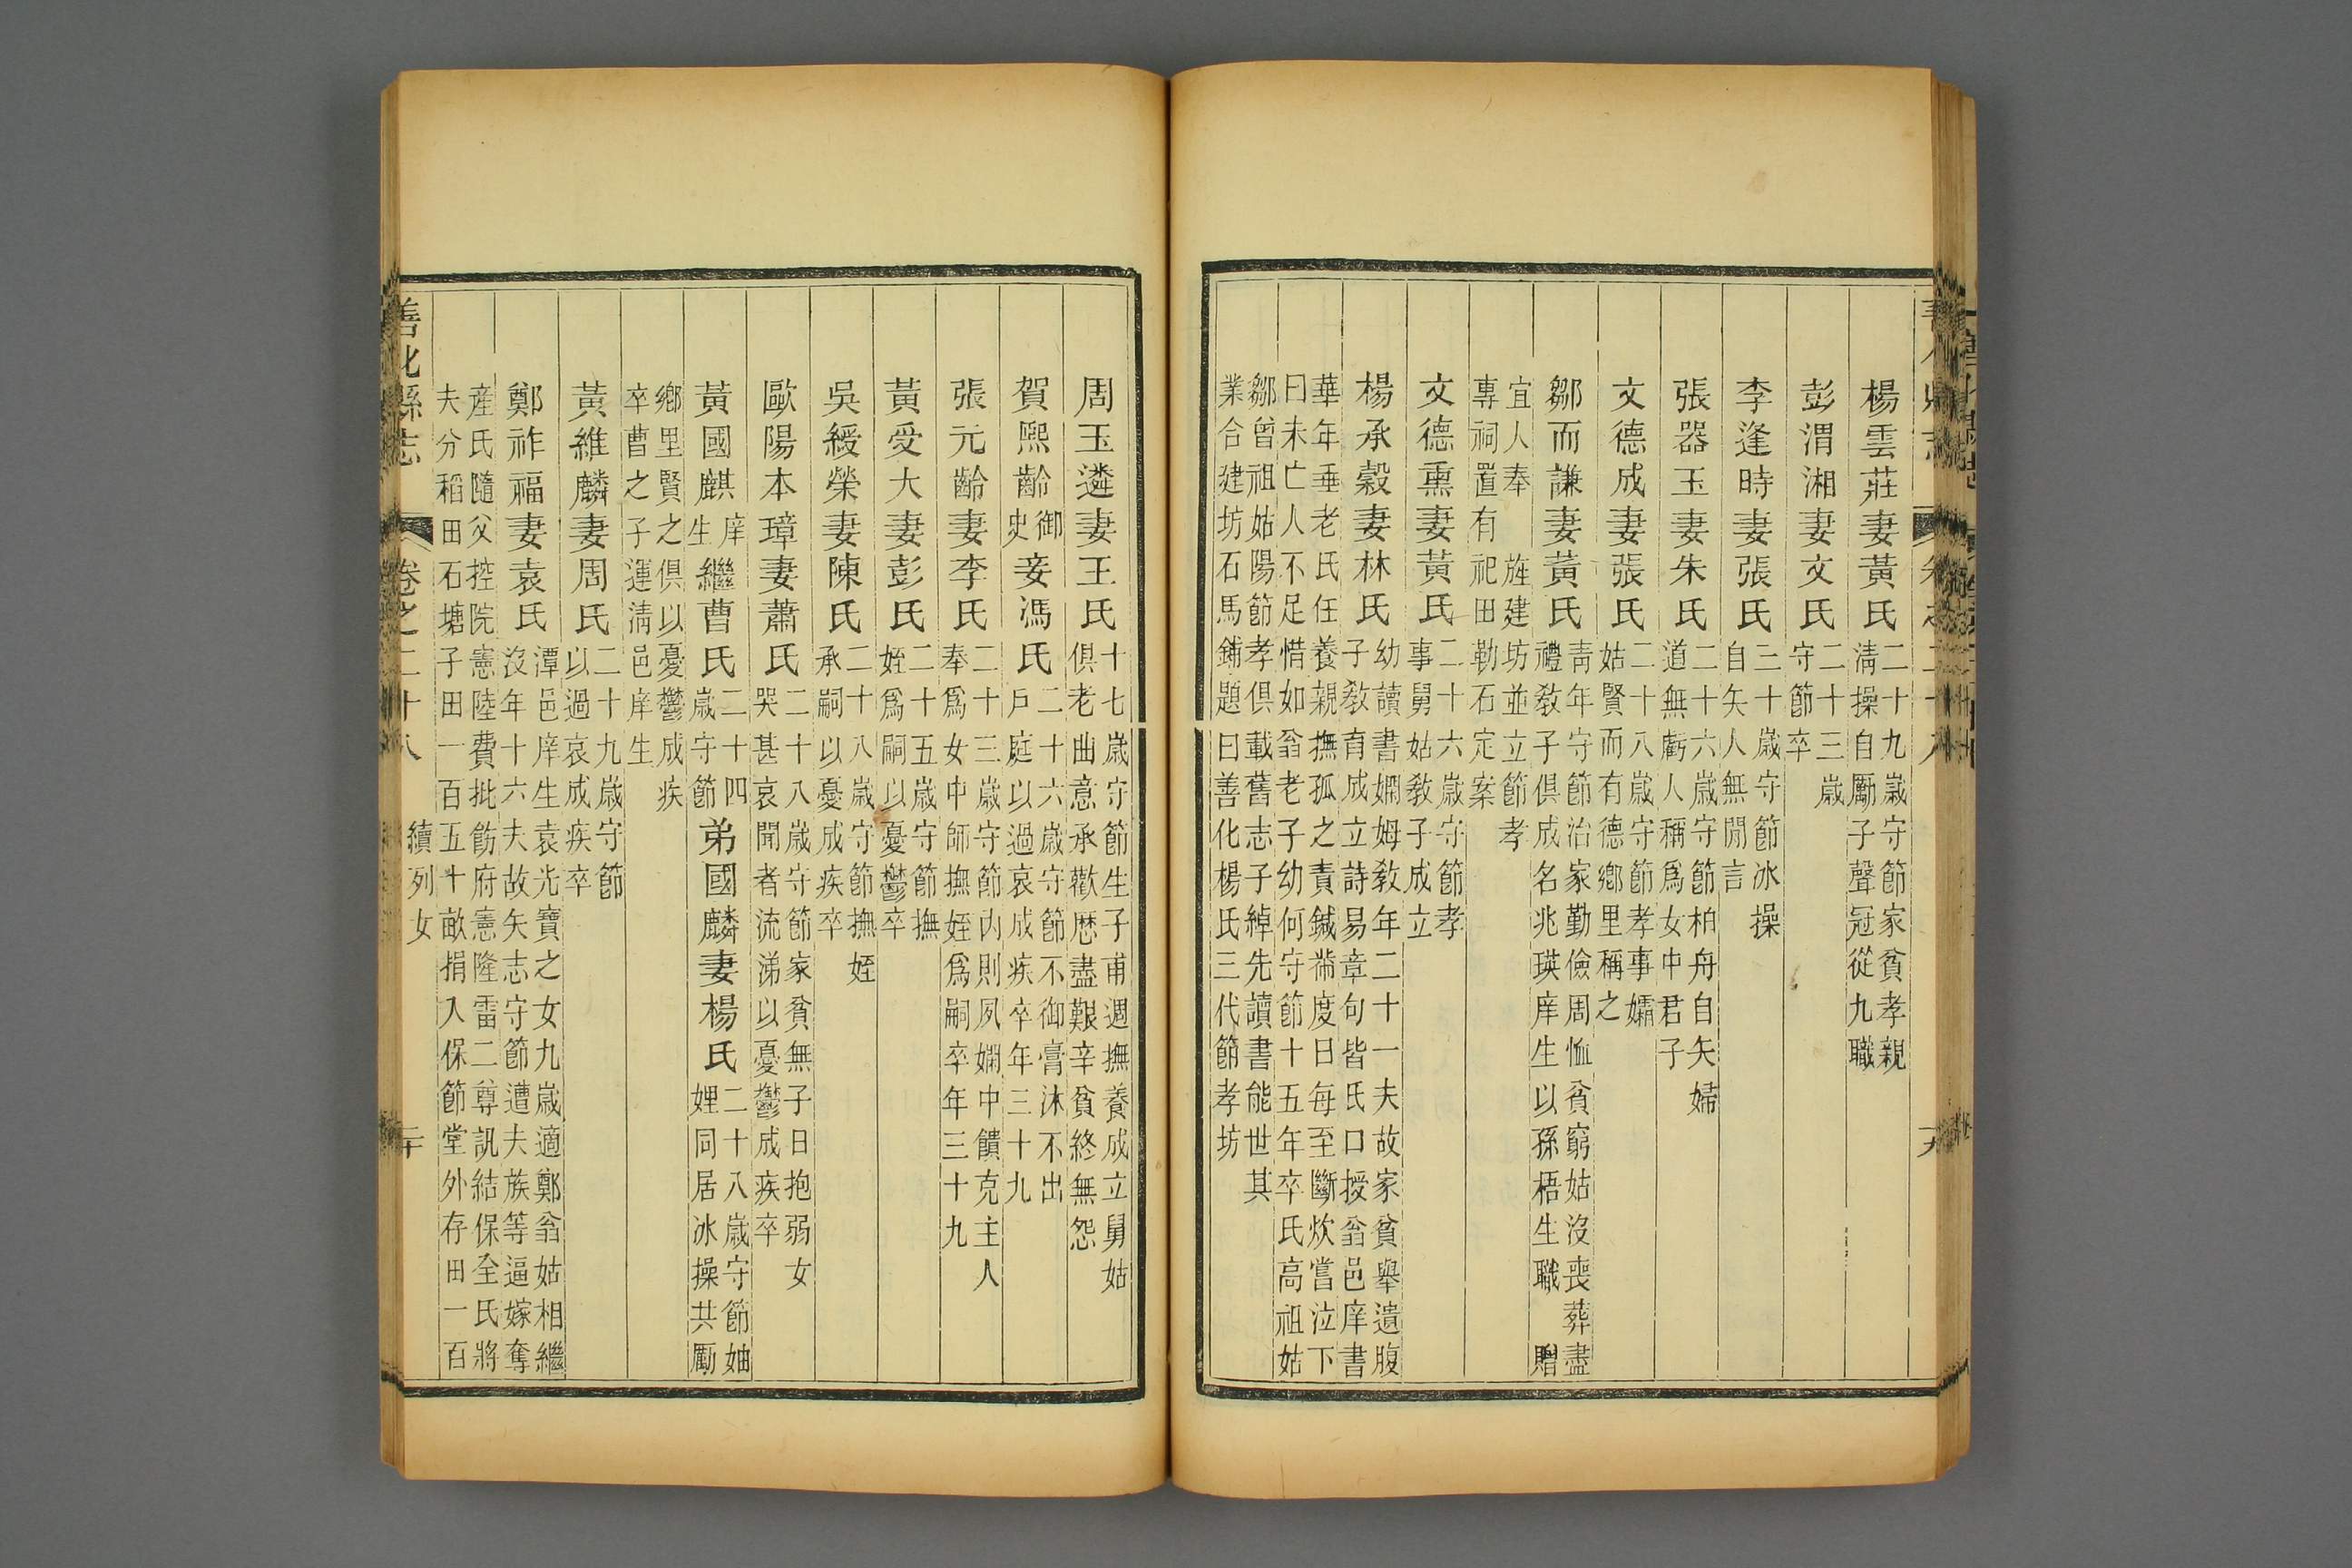 楊雲莊妻黃氏二十九歲守節家貧孝親
清操自勵子聲冠從九職
彭渭湘妻文氏二十三歲
守節卒
李逢時妻張氏三十歲守節冰操
自矢人無閒言
張器玉妻朱氏二十六歲守節柏舟自矢婦
道無虧人稱爲女中君子
文德成妻張氏二十八歲守節孝事孀
姑賢而有德鄉里稱之
鄒而謙妻黃氏靑年守節治家勤儉周恤貧窮姑沒喪葬盡
禮敎子俱成名兆瑛庠生以孫梧生職贈
宜人奉旌建坊並立節孝
專祠置有祀田勒石定案
文德熏妻黃氏二十六歲守節孝
事舅姑敎子成立
楊承穀妻林氏幼讀書嫻姆敎年二十一夫故家貧舉遺腹
子敎育成立詩易章句皆氏口授翁邑庠書
華年垂老氏任養親撫孤之責鍼黹度日每至斷炊嘗泣下
曰未亡人不足惜如翁老子幼何守節十五年卒氏高祖姑
鄒曾祖姑陽節孝俱載舊志子綽先讀書能世其
業合建坊石馬鋪題曰善化楊氏三代節孝坊
周玉遴妻王氏十七歲守節生子甫週撫養成立舅姑
俱老曲意承歡歷盡艱辛貧終無怨
賀熙齡御史妾馮氏二十六歲守節不御膏沐不出
戶庭以過哀成疾卒年三十九
張元齡妻李氏二十三歲守節內則夙嫻中饋克主人
奉爲女中師撫姪爲嗣卒年三十九
黃受大妻彭氏二十五歲守節撫
姪爲嗣以憂鬱卒
吳綬榮妻陳氏二十八歲守節撫姪
承嗣以憂成疾卒
歐陽本璋妻蕭氏二十八歲守節家貧無子日抱弱女
哭甚哀聞者流涕以憂鬱成疾卒
黃國麒庠生繼曹氏二十四歲守節弟國麟妻楊氏二十八歲守節妯
娌同居冰操共勵
鄉里賢之俱以憂鬱成疾
卒曹之子運淸邑庠生
黃維麟妻周氏二十九歲守節
以過哀成疾卒
鄭祚福妻袁氏潭邑庠生袁光寶之女九歲適鄭翁姑相繼
沒年十六夫故矢志守節遭夫族等逼嫁奪
產氏隨父控院憲陸費批飭府憲隆雷二尊訊結保全氏將
夫分稻田石塘子田一百五十畝捐入保節堂外存田一百
善化縣志 卷之二十八 續列女 二十